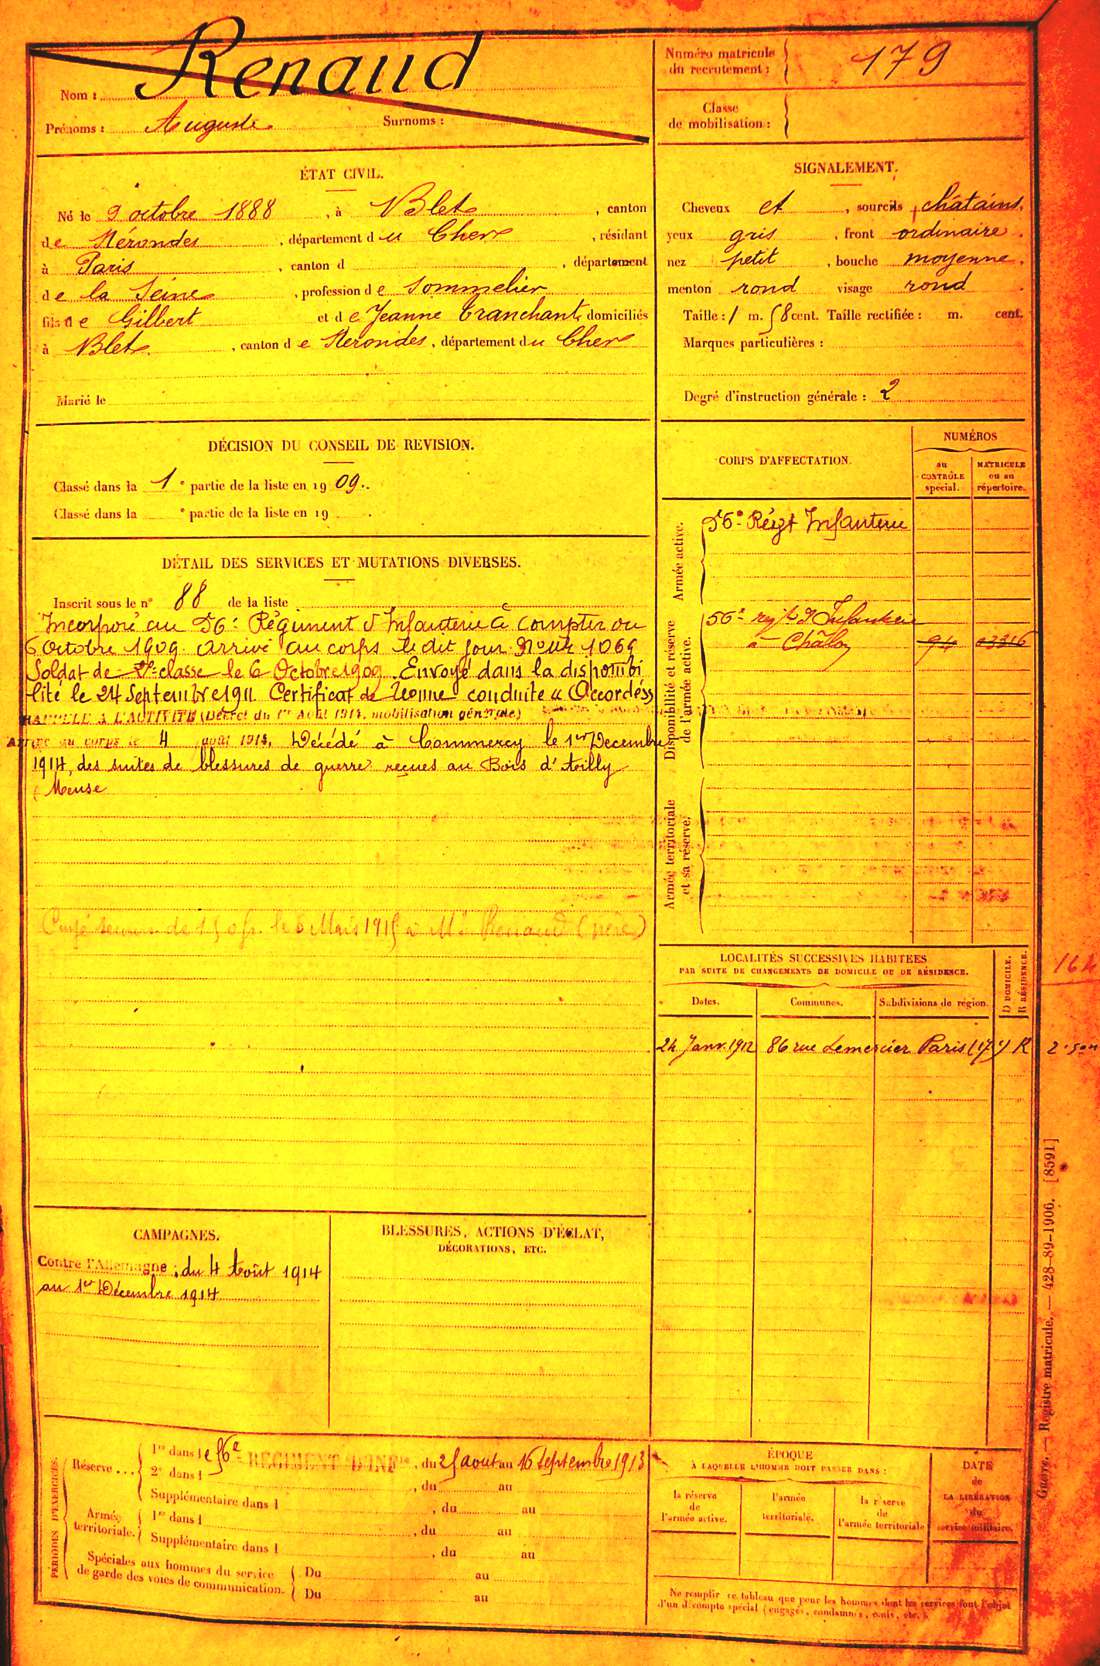 Nom : Renaud
Prénoms : Auguste Surnoms :
Numéro matricule du recrutement : 179
Classe de mobilisation :
ÉTAT CIVIL.
Né le 9 octobre 1888, à Blet, canton
de Nérondes, département du Cher, résidant
à Paris, canton d , département
de la Seine, profession de Sommelier
fils de Gilbert et de Jeanne Tranchant, domiciliés
à Blet, canton de Nérondes, département du Cher
Marié le
SIGNALEMENT.
Cheveux et , sourcils châtains.
yeux gris , front ordinaire .
nez petit , bouche moyenne .
menton rond visage rond .
Taille : 1 m. 58 cent. Taille rectifiée : m. cent.
Marques particulières :
Degré d'instruction générale : 2
DÉCISION DU CONSEIL DE REVISION.
Classé dans la 1e partie de la liste en 1909.
Classé dans la e partie de la liste en 19 .
DÉTAIL DES SERVICES ET MUTATIONS DIVERSES.
Inscrit sous le n° 88 de la liste
Incorporé au 56e Régiment d'Infanterie à compter du
6 octobre 1909 arrivé au corps le dit jour. No Mle 1069
Soldat de 2e classe le 6 Octobre 1909. Envoyé dans la disponibi
lité le 24 Septembre 1911. Certificat de bonne conduite "Accordé"
RAPPELÉ À L'ACTIVITÉ (Décret du 1er Août 1914, mobilisation générale)
Arrivé au corps le 4 août 1914. Décédé à Commercy le 1er Décembre
1914, des suites de blessures de guerre reçues au Bois d'Ailly
(Meuse
de 150 fr. le 6 Mars 1915 à Mr Renaud (père)
CORPS D'AFFECTATION.
NUMÉROS
au CONTRÔLE spécial.
MATRICULE ou au répertoire.
Armée active.
56e Régt Infanterie
Disponibilité et réserve de l'armée active.
56e régt d'Infanterie
à Châlon
Armée territoriale et sa réserve.
LOCALITÉS SUCCESSIVES HABITÉES
PAR SUITE DE CHANGEMENTS DE DOMICILE OU DE RÉSIDENCE.
D DOMICILE.
R RÉSIDENCE.
Dates. Communes. Subdivisions de région.
24 Janv. 1912 86 rue Lemercier Paris (17) R
CAMPAGNES.
Contre l'Allemagne : du 4 Août 1914
au 1er Décembre 1914
BLESSURES, ACTIONS D'ÉCLAT,
DÉCORATIONS, ETC.
PÉRIODES D'EXERCICES.
Réserve...
1re dans le 56e RÉGIMENT D'INFie, du 25 août au 16 Septembre 1913
2e dans l , du au
Supplémentaire dans l , du au
Armée territoriale.
1re dans l , du au
Supplémentaire dans l , du au
Spéciales aux hommes du service de garde des voies de communication.
Du au
Du au
ÉPOQUE
À LAQUELLE L'HOMME DOIT PASSER DANS :
la réserve de l'armée active.
l'armée territoriale.
la réserve de l'armée territoriale
DATE de LA LIBÉRATION du service militaire.
Ne remplir ce tableau que pour les hommes dont les services font l'objet
d'un décompte spécial (engagés, condamnés, omis, etc.).
Guerre. — Registre matricule. — 428-89-1906. [8591]